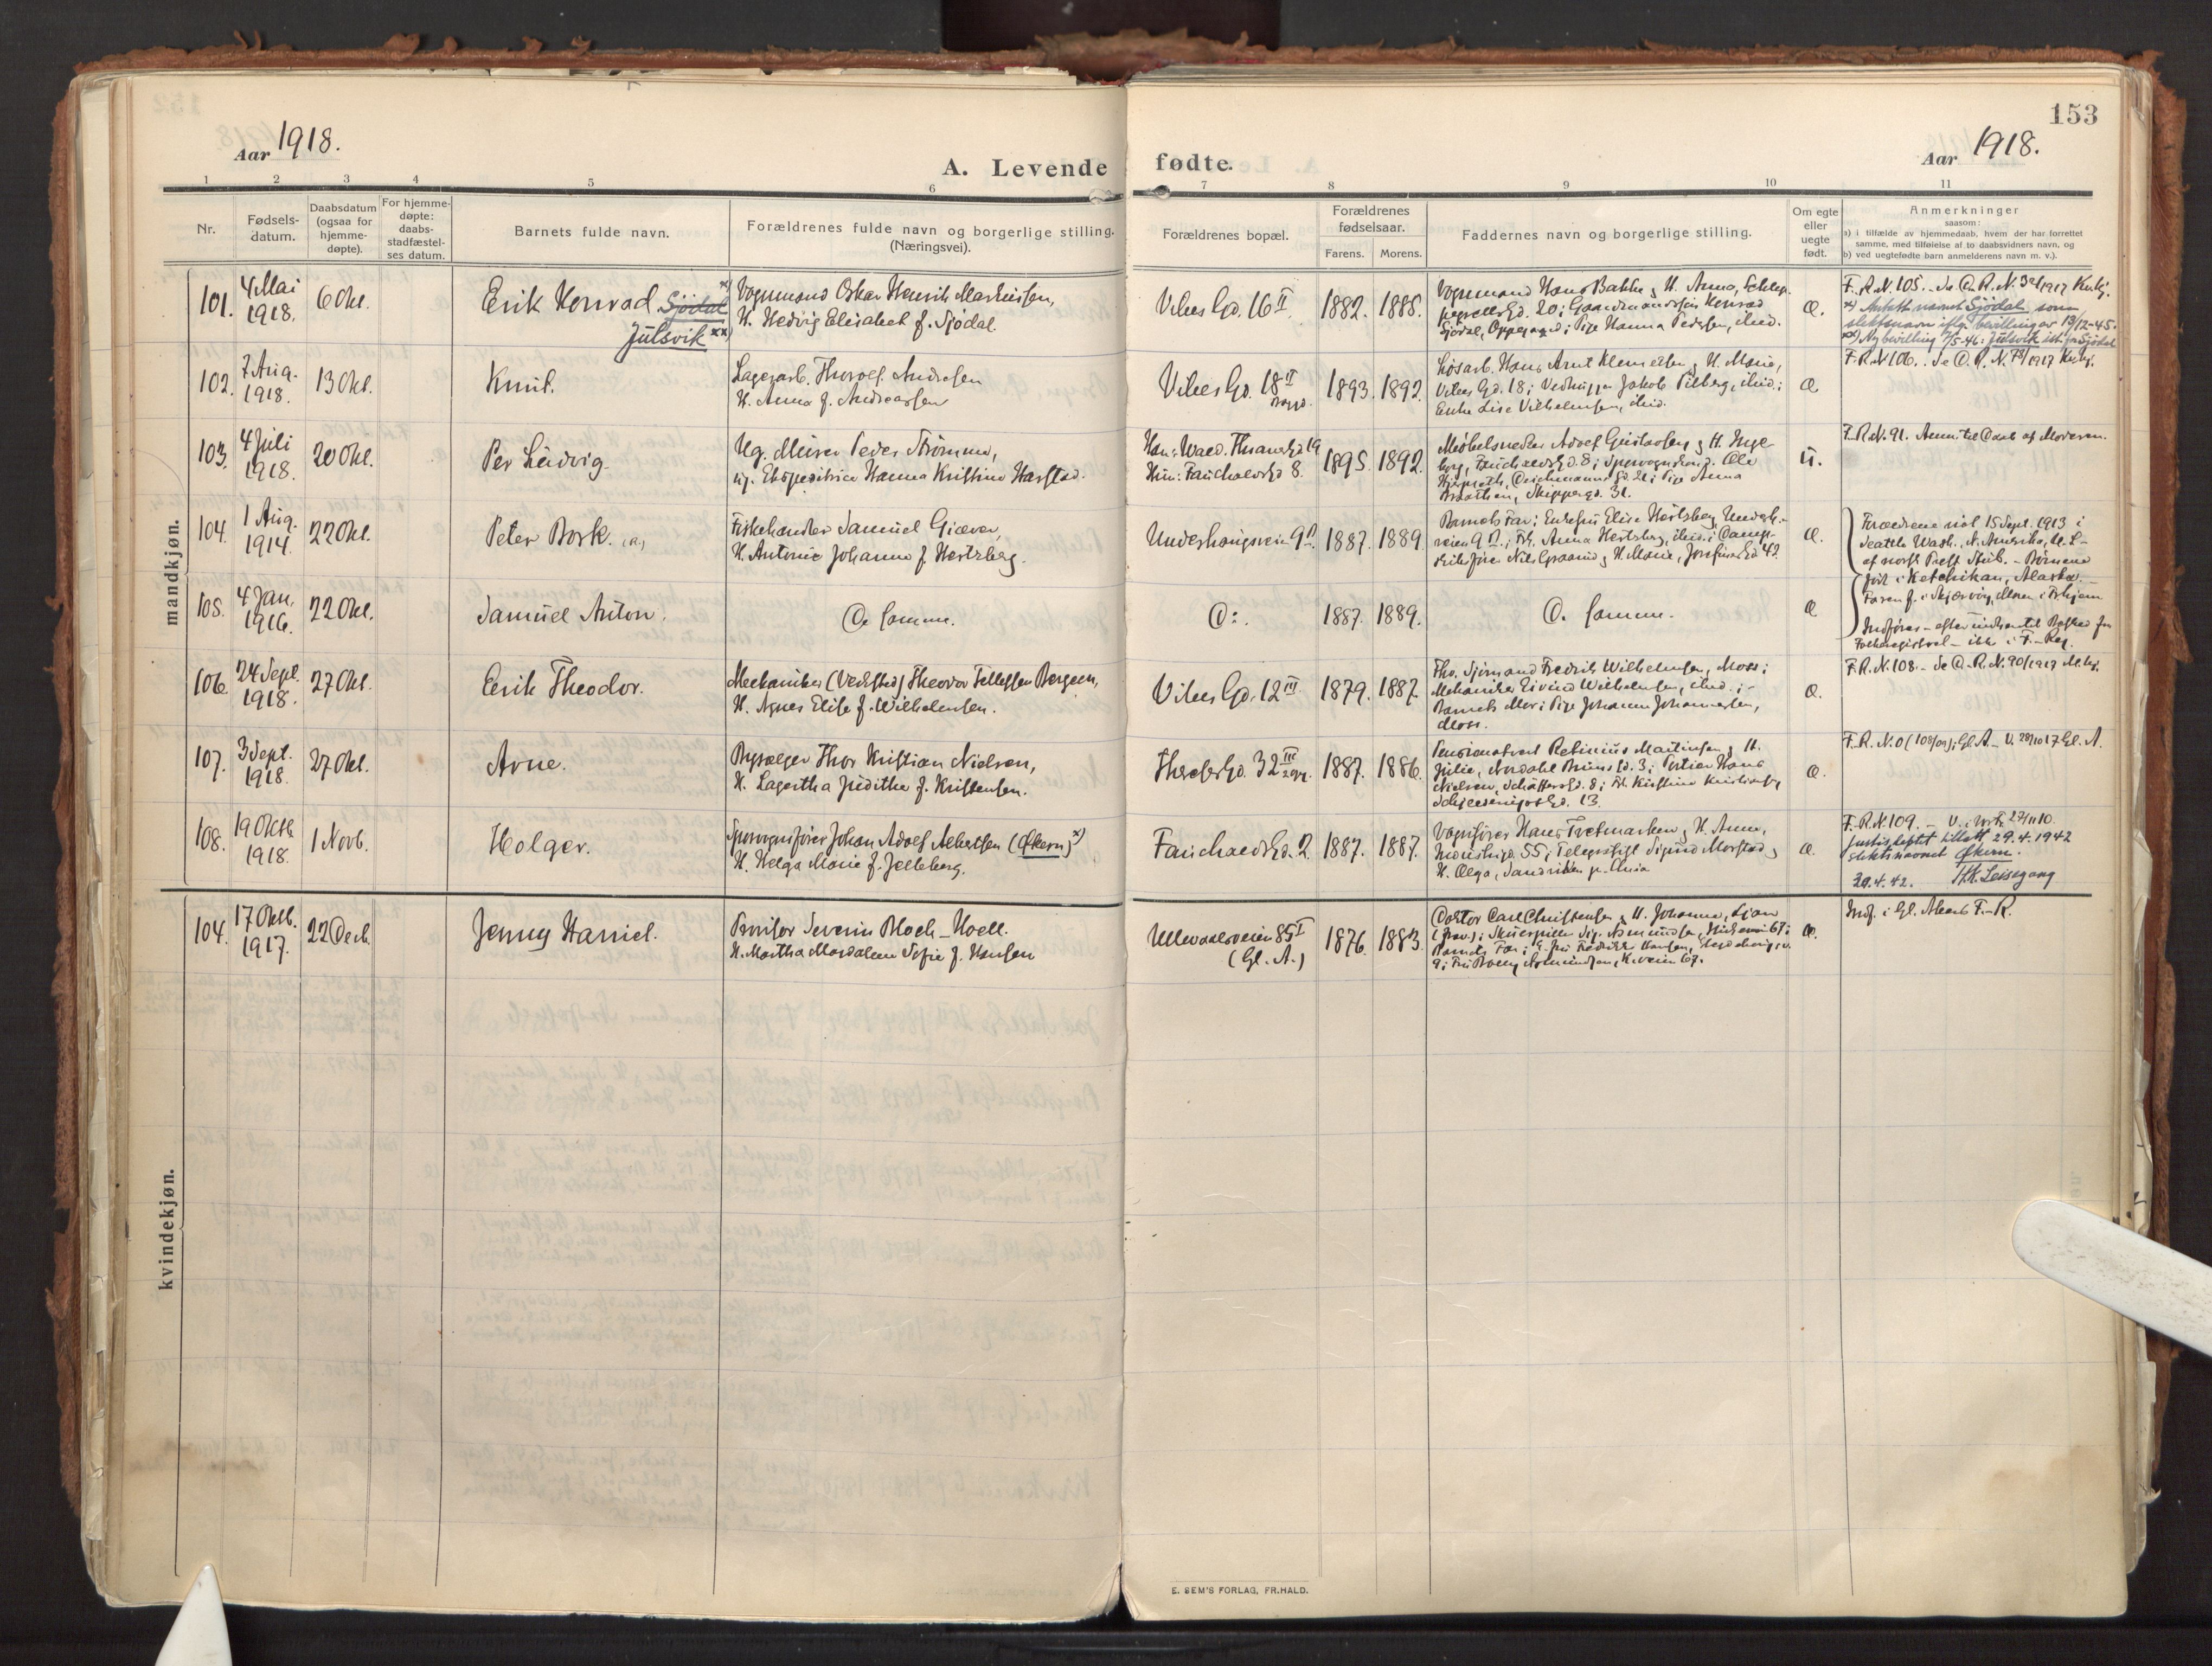 153
Aar 1918.
A. Levende fødte.
Aar 1918.
1 2 3 4 5 6 7 8 9 10 11
Nr.
Fødsels-
datum.
Daabsdatum
(ogsaa for
hjemme-
døpte).
For hjemme-
døpte:
daabs-
stadfæstel-
ses datum.
Barnets fulde navn.
Forældrenes fulde navn og borgerlige stilling.
(Næringsvei).
Forældrenes bopæl.
Forældrenes
fødselsaar.
Farens. Morens.
Faddernes navn og borgerlige stilling.
Om egte
eller
uegte
født.
Anmerkninger
saasom:
a) i tilfælde av hjemmedaab, hvem der har forrettet
samme, med tilføielse af to daabsvidners navn, og
b) ved uegtefødte barn anmelderens navn m. v.).
mandkjøn.
101.
4 Mai
1918.
6 Okt.
Erik Konrad Sjödal x)
Julsvik xx)
Vognmand Oskar Henrik Markussen,
H. Hedvig Elisabet f. Sjödal.
Vibes Gd. 16 II.
1882. 1888.
Vognmand Hans Bakke & H. Anna, Schlep-
pegrells Gd. 20; Gaardmandssøn Konrad
Sjödal, Oppegaard; Pige Hanna Pedersen, ibid.
Æ.
F.-R. N. 105.
x) Antatt navnet Sjödal som
slektsnavn iflg. bevilling av 19/12-45.
xx) Ny bevilling 7/5-46: Julsvik ist. for Sjödal
102.
7 Aug.
1918.
13 Okt.
Knut.
Lagerarb. Thorolf Andresen
H. Anna f. Andreassen
Vibes Gd. 18 II
1893. 1892.
Løsarb. Hans Arnt Klemetsen & H. Marie,
Vibes Gd. 18; Vedhugger Jakob Pilberg, ibid.;
Enke Lise Vilhelmsen, ibid.
Æ
F.-R. N. 106.
103.
4 Juli
1918.
20 Okt.
Per Ludvig
Ug. Murer Peder Strømme,
ug. Ekspeditrice Hanna Kristine Harstad.
Han: Wald. Thranes Gd 19
Hun: Fauchalds Gd 8.
1895. 1892.
Møbelsnedker Adolf Gustavsen & H. Inge-
borg, Fauchalds Gd. 8; Sporvognskond. Ole
Deichmanns Gd 21; Pige Anna
Braathen, Skippergd. 31.
U.
F.-R. N. 91. Anm. til Daab af Moderen.
104.
1 Aug.
1914.
22 Okt.
Peter Bork.
Fiskehandler Samuel Giæver,
H. Antonie Johanne f. Hertzberg.
Underhaugsvein 9 II
1887. 1889
Barnets Far; Enkefru Elise Hertzberg, Underh.-
veien 9 II; Frk. Anna Hertzberg, ibid.; Damp-
skibsfører Nils Graand & H. Marie, Josefines Gd 42
Æ.
Forældrene viet 15 Sept. 1913 i
Seattle Wash., N. Amerika, U. S.
af norsk Prest Stub. – Børnene
født i Ketchikan, Alaska. –
Faren f. i Skjærvøy, Moren i Trhjem
Indføres – efter
Folkeregistret – ikke i F.-Reg.
105.
4 Jan.
1916.
22 Okt.
Samuel Anton.
De samme.
Do.
1887. 1889.
De samme.
Æ
106.
24 Sept.
1918.
27 Okt.
Erik Theodor.
Mekaniker (Verksted) Theodor Tellefsen Bergem,
H. Agnes Elise f. Wilhelmsen.
Vibes Gd. 12 III
1879. 1887.
Fhv. Sjømand Fredrik Wilhelmsen, Moss;
Mekaniker Eivind Wilhelmsen, ibid.;
Barnets Mor; Pige Johanne Johannessen,
Moss.
Æ.
F.-R. N. 108.
107.
3 Sept.
1918.
27 Okt.
Arne.
Bysælger Thor Kristian Nielsen,
H. Lagertha Juditha f. Kristensen.
Thereses Gd. 32 III
1887. 1886.
Pensionatvert Retinius Martinsen & H.
Julie, Nordahl Bruns Gd. 3; Portier Hans
Nielsen, Schäffers Gd. 8; Frk. Kristine Kristensen,
13.
Æ.
108.
19 Oktb
1918.
1 Novb.
Holger.
Sporvognsfører Johan Adolf Albertsen (Økern) x)
H. Helga Marie f. Jelleberg.
Fauchalds Gd. 2.
1887. 1887.
Vognfører Hans Tvetmarken & H. Anna,
55; Telegrafist Sigurd Morstad &
H. Olga, Sandviken pr. Chria
Æ.
F.-R. N. 109.
Justisdeptet tillatt 29.4.1942
slektsnavnet Økern.
29.4.42.
kvindekjøn.
104.
17 Oktb.
1917.
22 Decb.
Jenny Harriet.
Provisor Severin Bloch-Hoell.
H. Martha Magdalene Sofie f. Hansen
Ullevaalsveien 85 I
(Gl. A.)
1876. 1883.
Doktor Carl Christensen & H. Johanne, Ljan
Barnets Far;
Æ.
Indf. i Gl. Akers F.-R.
E. SEM'S FORLAG, FR.HALD.